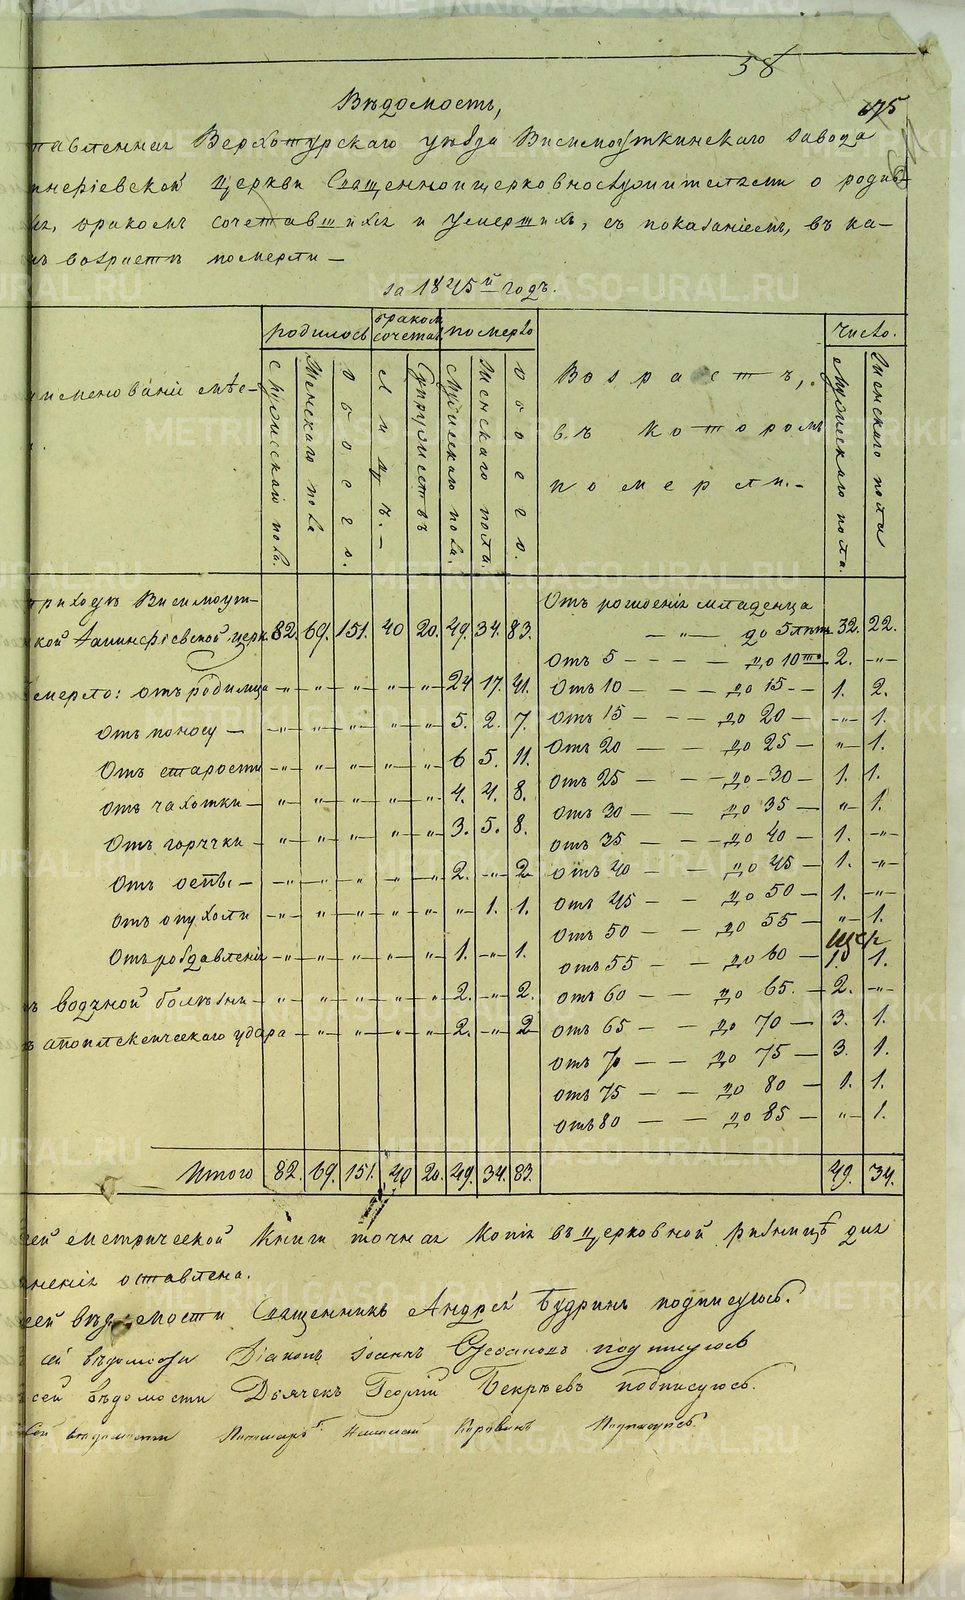 58
675
Вѣдомость,
ставленная Верхотурскаго уѣзда Висимоуткинскаго завода
церкви Священноцерковнослужителями о родив-
бракомъ сочетавшихся и умершихъ, съ показаніемъ, въ ка-
возрастѣ померли —
за 1845й годъ.
родилось бракомъ сочетав. померло число.
именованіе мѣс-
Мужескаго пола. Женскаго пола Обоего. Лицъ. — Супружествъ Мужескаго пола. Женскаго пола. Обоего. Возрастъ, въ которомъ померли. — Мужескаго пола. Женскаго пола
приходѣ Висимоут-
кой церк. 82. 69. 151. 40 20. 49. 34. 83.
Отъ рожденія младенца
— „ — до 5 лѣтъ 32. 22.
Отъ 5 — — — до 10ти 2. —„—
померло: отъ родимца —„— „ „ „ „ 24 17. 41. Отъ 10 — — — до 15 — 1. 2.
Отъ поносу — —„— „ „ „ „ 5. 2. 7. Отъ 15 — — — до 20 — —„— 1.
Отъ старости —„— „ „ „ „ 6 5. 11. Отъ 20 — — — до 25 — „ 1.
Отъ чахотки — —„— „ „ „ „ 4. 4. 8. Отъ 25 — — — до 30 — 1. 1.
Отъ 30 — — до 35 — „ 1.
Отъ горячки — —„— „ „ „ „ 3. 5. 8. Отъ 35 — — до 40 — 1. —„—
Отъ оспы — —„— „ „ „ „ 2. —„— 2. Отъ 40 — — до 45 — 1. —„—
Отъ опухоли —„— „ „ „ „ „ 1. 1. Отъ 45 — — до 50 — 1. —„—
Отъ 50 — — до 55 — „ 1.
Отъ роздавленія —„— „ „ „ „ 1. —„— 1. Отъ 55 — — до 60 — 1. 1.
водяной болѣзни — „ „ „ „ „ 2. —„— 2. Отъ 60 — — до 65. — 2. —„—
апоплексическаго удара — „ „ „ „ „ 2. —„— 2 Отъ 65 — — до 70 — 3. 1.
Отъ 70 — — до 75 — 3. 1.
Отъ 75 — — до 80 — 1. 1.
Отъ 80 — — до 85 — „ 1.
Итого 82. 69. 151. 40 20. 49. 34. 83. 49. 34.
сей метрической книги точная копія въ церковной ризницѣ для
ненія оставлена.
сей вѣдомости Священникъ Андрей Будринъ подписуюсь.
сей вѣдомости Діаконъ Іоаннъ подписуюсь
сей вѣдомости Дьячекъ Георгій Бекрѣевъ подписуюсь.
сей вѣдомости Пономарь Николай Коровинъ подписуюсь
METRIKI.GASO-URAL.RU